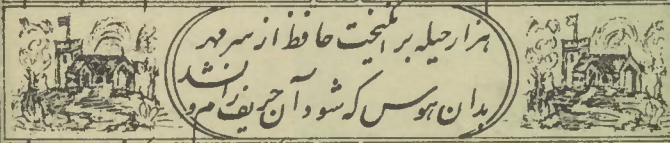 هزار حیله برانگیخت حافظ از سر مهر
بدان هوس که شود آن حریف رام و نشد